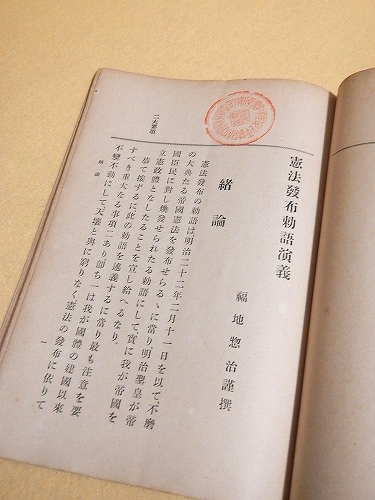 憲法發布勅語演義
福地惣治謹撰
緒論
憲法發布の勅語は明治二十二年二月十一日を以て、不磨
の大典たる帝國憲法を發布せらるゝに當り明治聖皇が帝
國臣民に對し煥發せられたる勅語にして、實に我が帝國を
立憲政體となしたることを宣し給へるなり。
恭て按ずるに此の勅語を述義するに當り最も注意を要
すべき重大なる事項二あり卽ち一は我が國體の建國以來
不變不動にして天壤と與に窮りなく、憲法の發布に依りて
二大要項
緒論
一